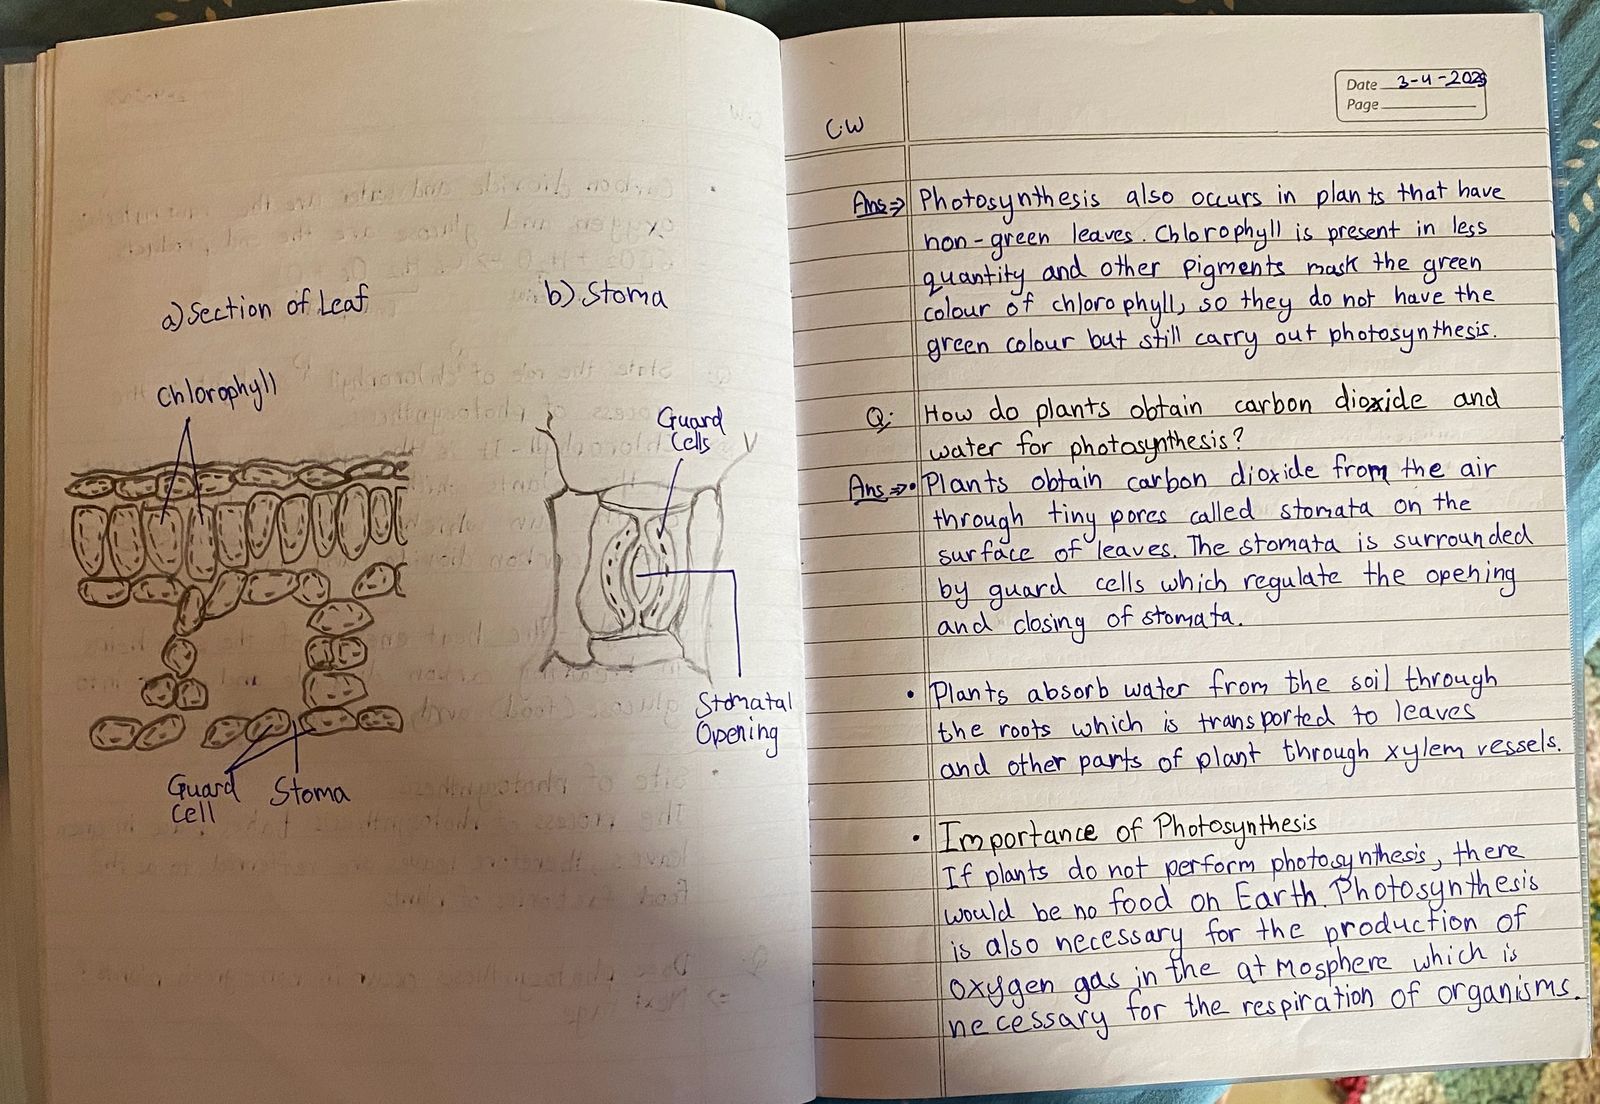 a) Section of Leaf
b) Stoma
Chlorophyll
Guard
Cells
Stomatal
Opening
Guard
Cell
Stoma
Date 3-4-2025
Page
C.W
Ans⇒ Photosynthesis also occurs in plants that have
non-green leaves. Chlorophyll is present in less
quantity and other pigments mask the green
colour of chlorophyll, so they do not have the
green colour but still carry out photosynthesis.
Q: How do plants obtain carbon dioxide and
water for photosynthesis?
Ans⇒ • Plants obtain carbon dioxide from the air
through tiny pores called stomata on the
surface of leaves. The stomata is surrounded
by guard cells which regulate the opening
and closing of stomata.
• Plants absorb water from the soil through
the roots which is transported to leaves
and other parts of plant through xylem vessels.
• Importance of Photosynthesis
If plants do not perform photosynthesis, there
would be no food on Earth. Photosynthesis
is also necessary for the production of
oxygen gas in the atmosphere which is
necessary for the respiration of organisms.